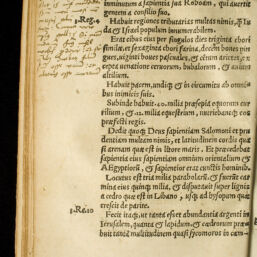 imminutum sapientia sua Roboam, qui auertit
gentem a consilio suo.
3.Reg.4 Habuit regiones tributarias multas nimis, & Iu
da & Israel populum innumerabilem.
Erat cibus eius per singulos dies triginta chori
similæ, et sexaginta chori farinæ, decem boues pin
gues, uiginti boues pascuales, & centum arietes, ex
cepta uenatione ceruorum, bubalorum, & auium
altilium.
Habuit pacem, undiq; & in circumitu ab omni
bus inimicis suis.
Subinde habuit .40. milia præsepia equorum cur
rilium, & .12. milia equestrium, nutriebanq; eos
præfecti regis.
Dedit quoq; Deus sapientiam Salomoni et pru
dentiam multam nimis, et latitudinem cordis quasi
arenam quæ est in litore maris. Et præcedebat
sapientia eius sapientiam omnium orientalium &
Aegyptiorū, & sapientior erat cunctis hominibus.
Locutus est tria milia parabolarū, & fuerunt car
mina eius quinq; milia, & disputauit super lignis
a cedro quæ est in Libano, usq; ad hysopum quæ
crescit de pariete.
3.Re.10 Fecit itaq; ut tanta esset abundantia argenti in
Ierusalem, quanta & lapidum, & cedrorum præ
buit tanquā multitudinem quasi sycomoros in cam-